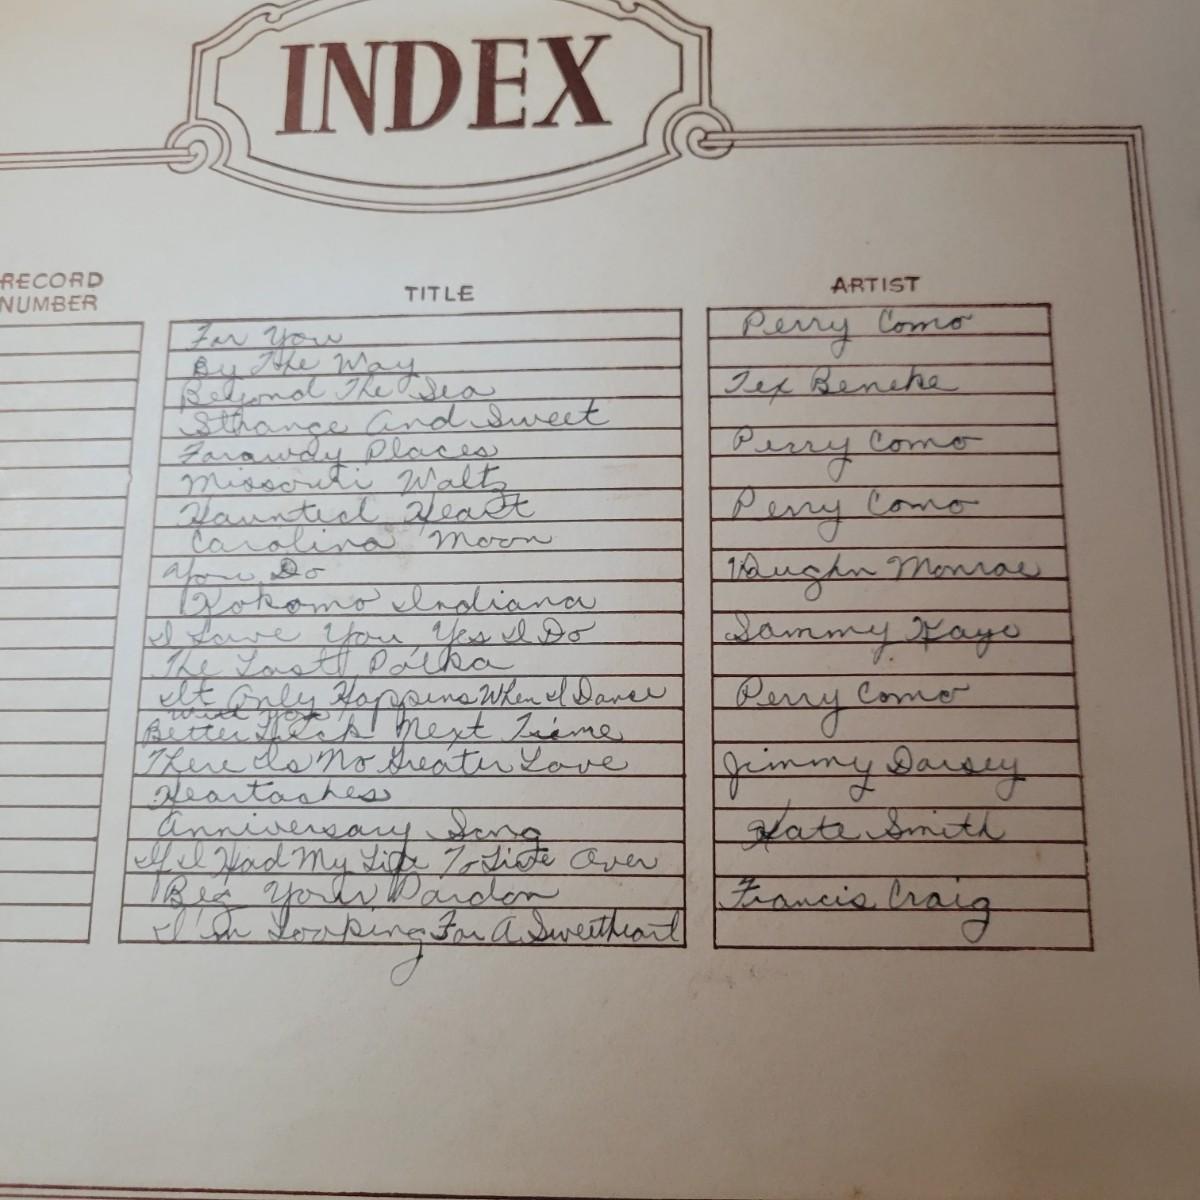 INDEX
RECORD NUMBER TITLE ARTIST
For You Perry Como
By The Way
Beyond The Sea Tex Beneke
Strange And Sweet
Faraway Places Perry Como
Missouri Waltz
Haunted Heart Perry Como
Carolina Moon
You Do Vaughn Monroe
Kokomo Indiana
I Love You, Yes I Do Sammy Kaye
The Last Polka
It Only Happens When I Dance Perry Como
With You
Better Luck Next Time
There Is No Greater Love Jimmy Dorsey
Heartaches
Anniversary Song Kate Smith
If I Had My Life To Live Over
Beg Your Pardon Francis Craig
I'm Looking For A Sweetheart